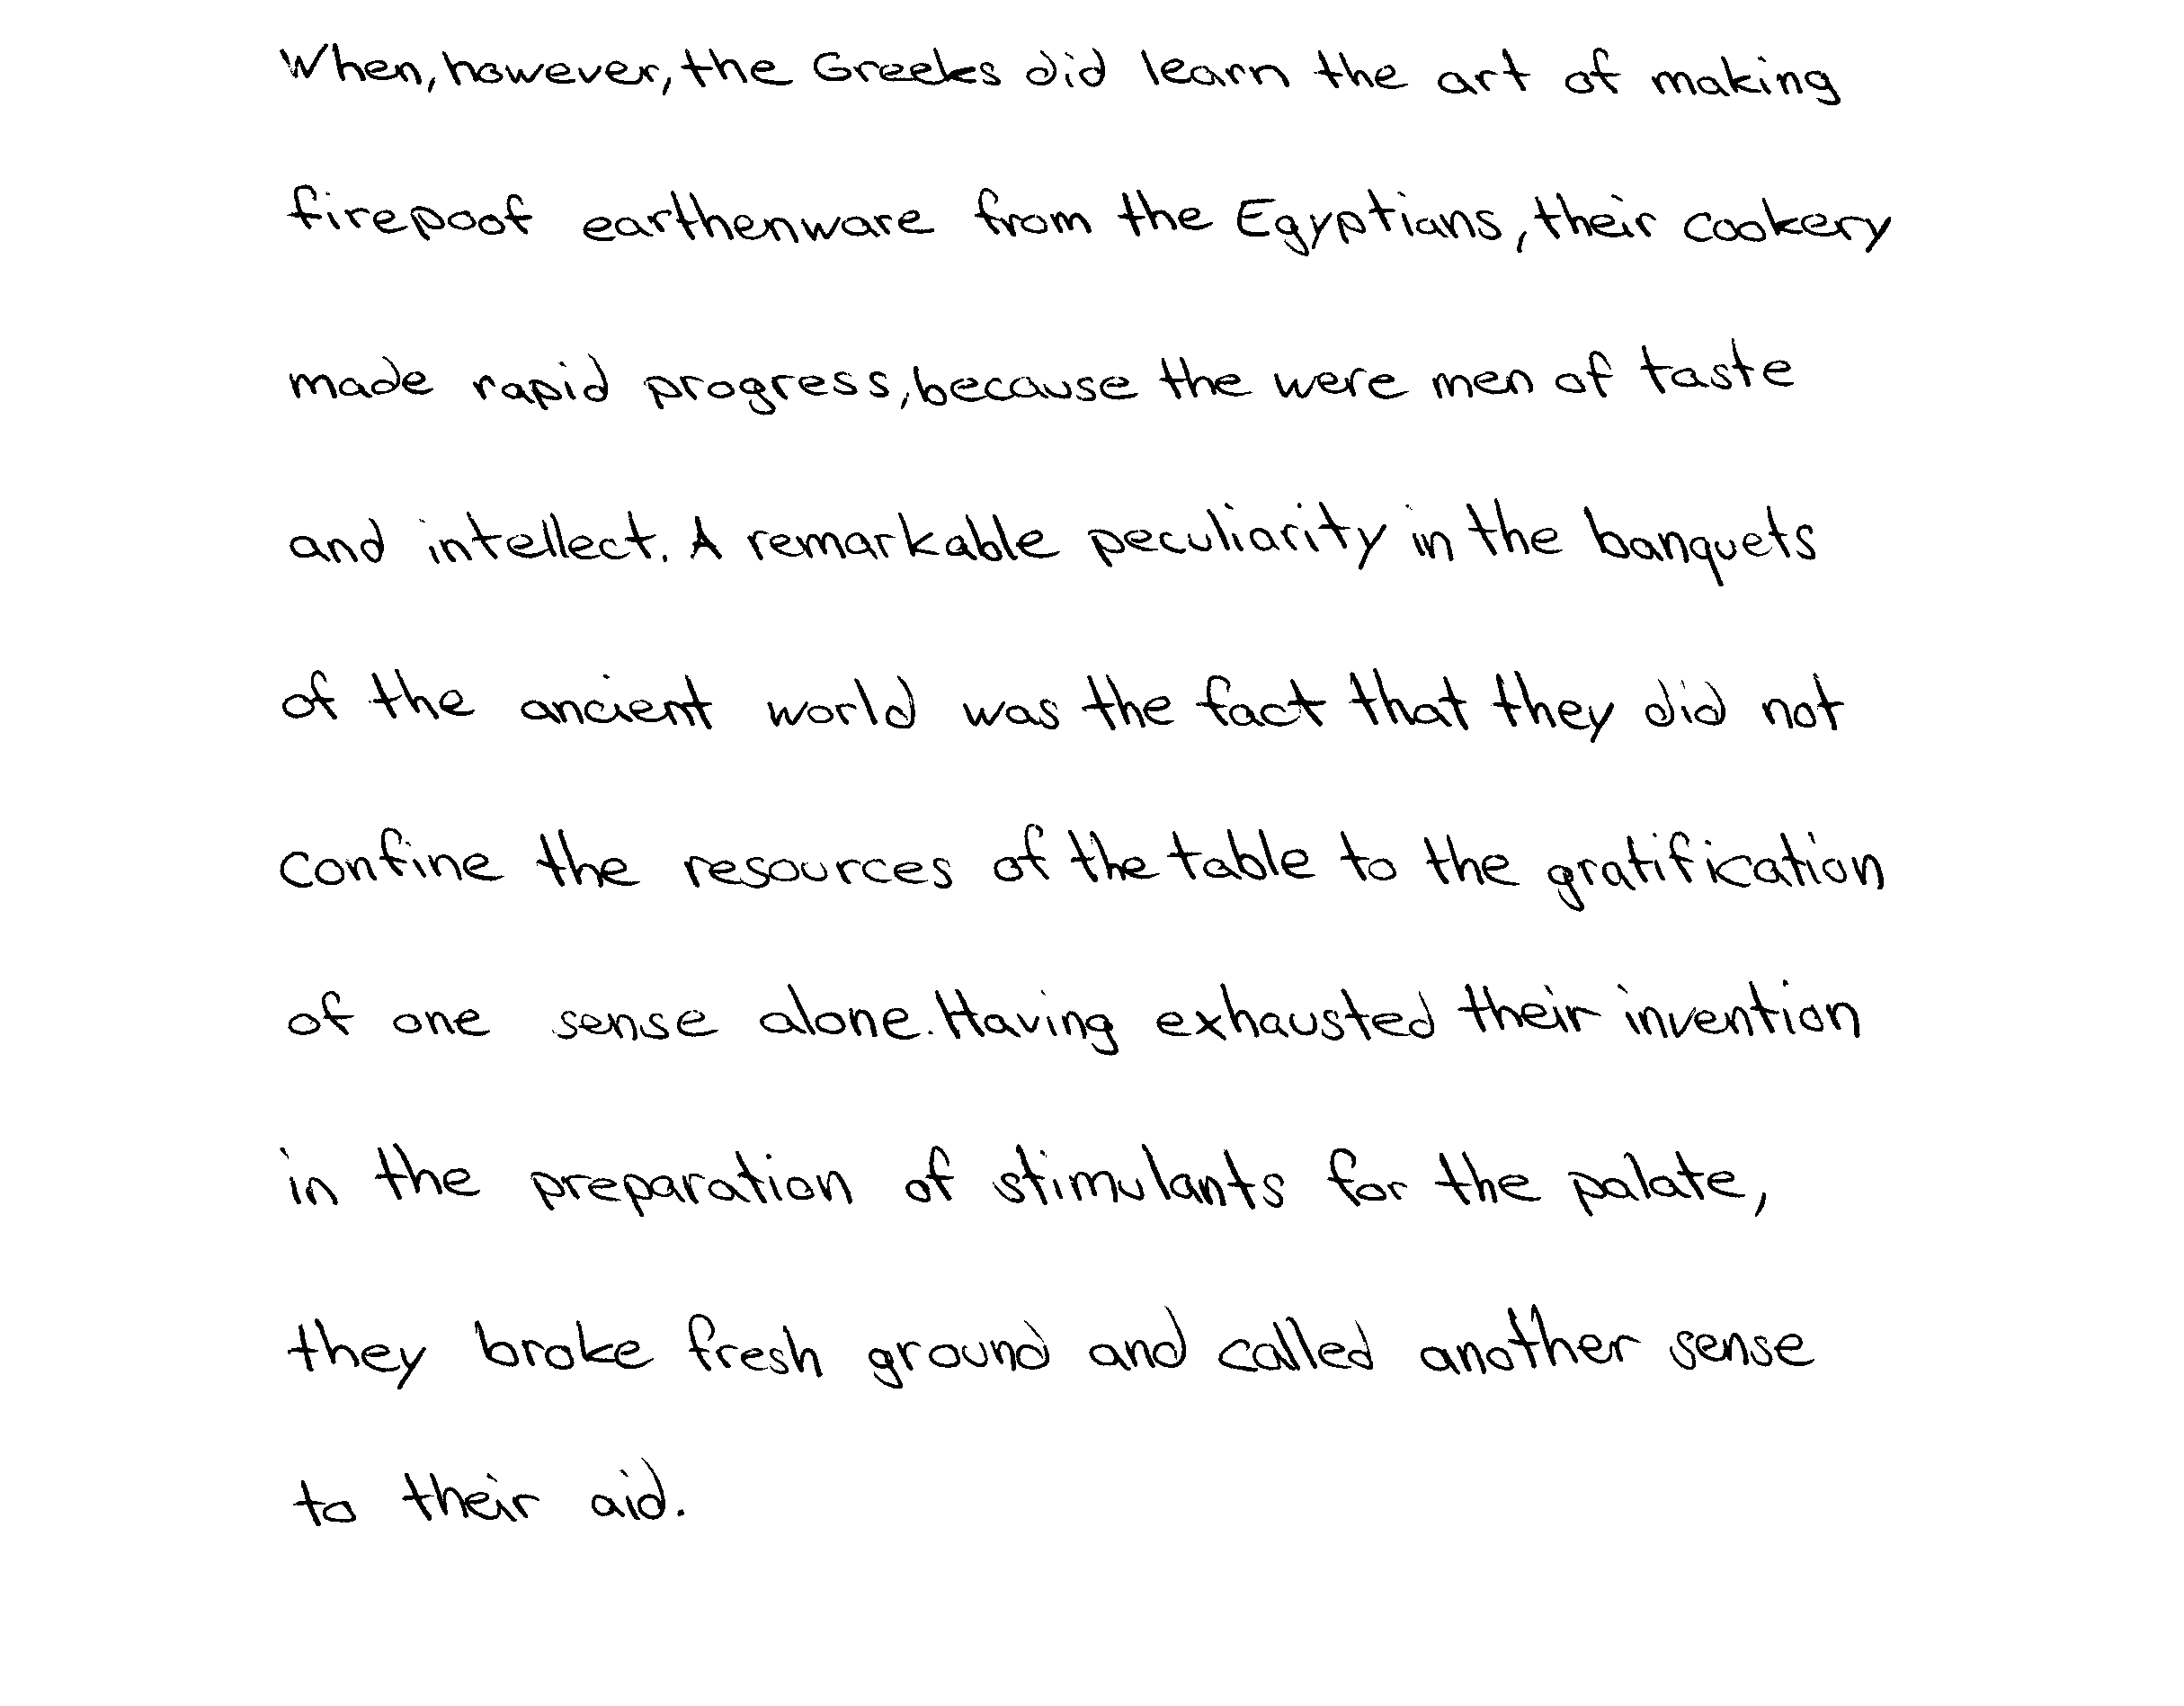 When, however, the Greeks did learn the art of making
firepoof earthenware from the Egyptians, their cookery
made rapid progress, because the were men of taste
and intellect. A remarkable peculiarity in the banquets
of the ancient world was the fact that they did not
confine the resources of the table to the gratification
of one sense alone. Having exhausted their invention
in the preparation of stimulants for the palate,
they broke fresh ground and called another sense
to their aid.